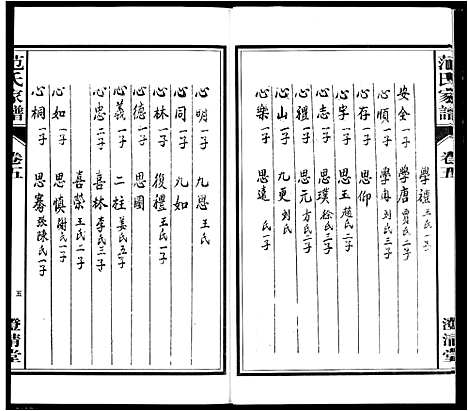 范氏家譜
卷五
澄清堂
學禮 王氏一子
安全 一子 學唐 賈氏二子
心順 一子 學海 刘氏三子
心存 一子 思仰
心字 一子 思玉 趙氏二子
心志 一子 思璞 徐氏三子
心禮 一子 思元 方氏二子
心山 一子 九更 刘氏
心樂 一子 思遠 氏一子
心明 一子 九思 王氏
心同 一子 九如
心林 一子 後禮 王氏一子
心德 一子 思國
心義 一子 二柱 姜氏五子
心忠 二子 喜林 李氏三子
喜榮 王氏二子
心如 一子 思慎 謝氏一子
心桐 一子 思騫 張陳氏一子
范氏家譜
卷五
五
澄清堂